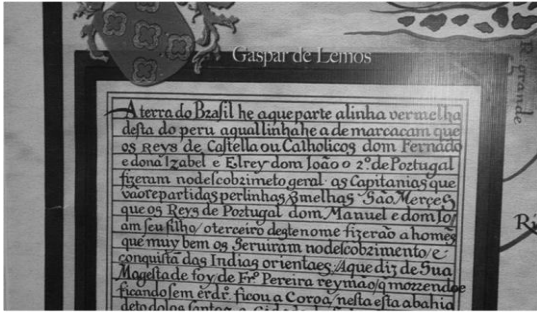 Gaspar de Lemos
A terra do Brasil he aque parte alinha vermelha
desta do peru aquallinha he a de marcacam que
os REYS de Castella ou Catholicos dom Fernãdo
e dona Izabel e Elrey dom João o 2º de Portugal
fizeram nodescobzimeto geral as Capitanias que
vão repartidas perlinhas vermelhas São Merçes
que os Reys de Portugal dom Manuel e dom Jo
am seu filho / o terceiro deste nome fizerão a homẽs
que muy bem os seruiram no descobzimento / e
conquista das Indias orientaes: Aque diz de Sua
Magestade foy de Frº Pereira
ficando sem ficou a Coroa / nesta esta abahia
R. grande
Ri